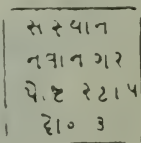 સંસ્થાન
નવાનગર
પોષ્ટ સ્ટાપ
દો૦ ૩